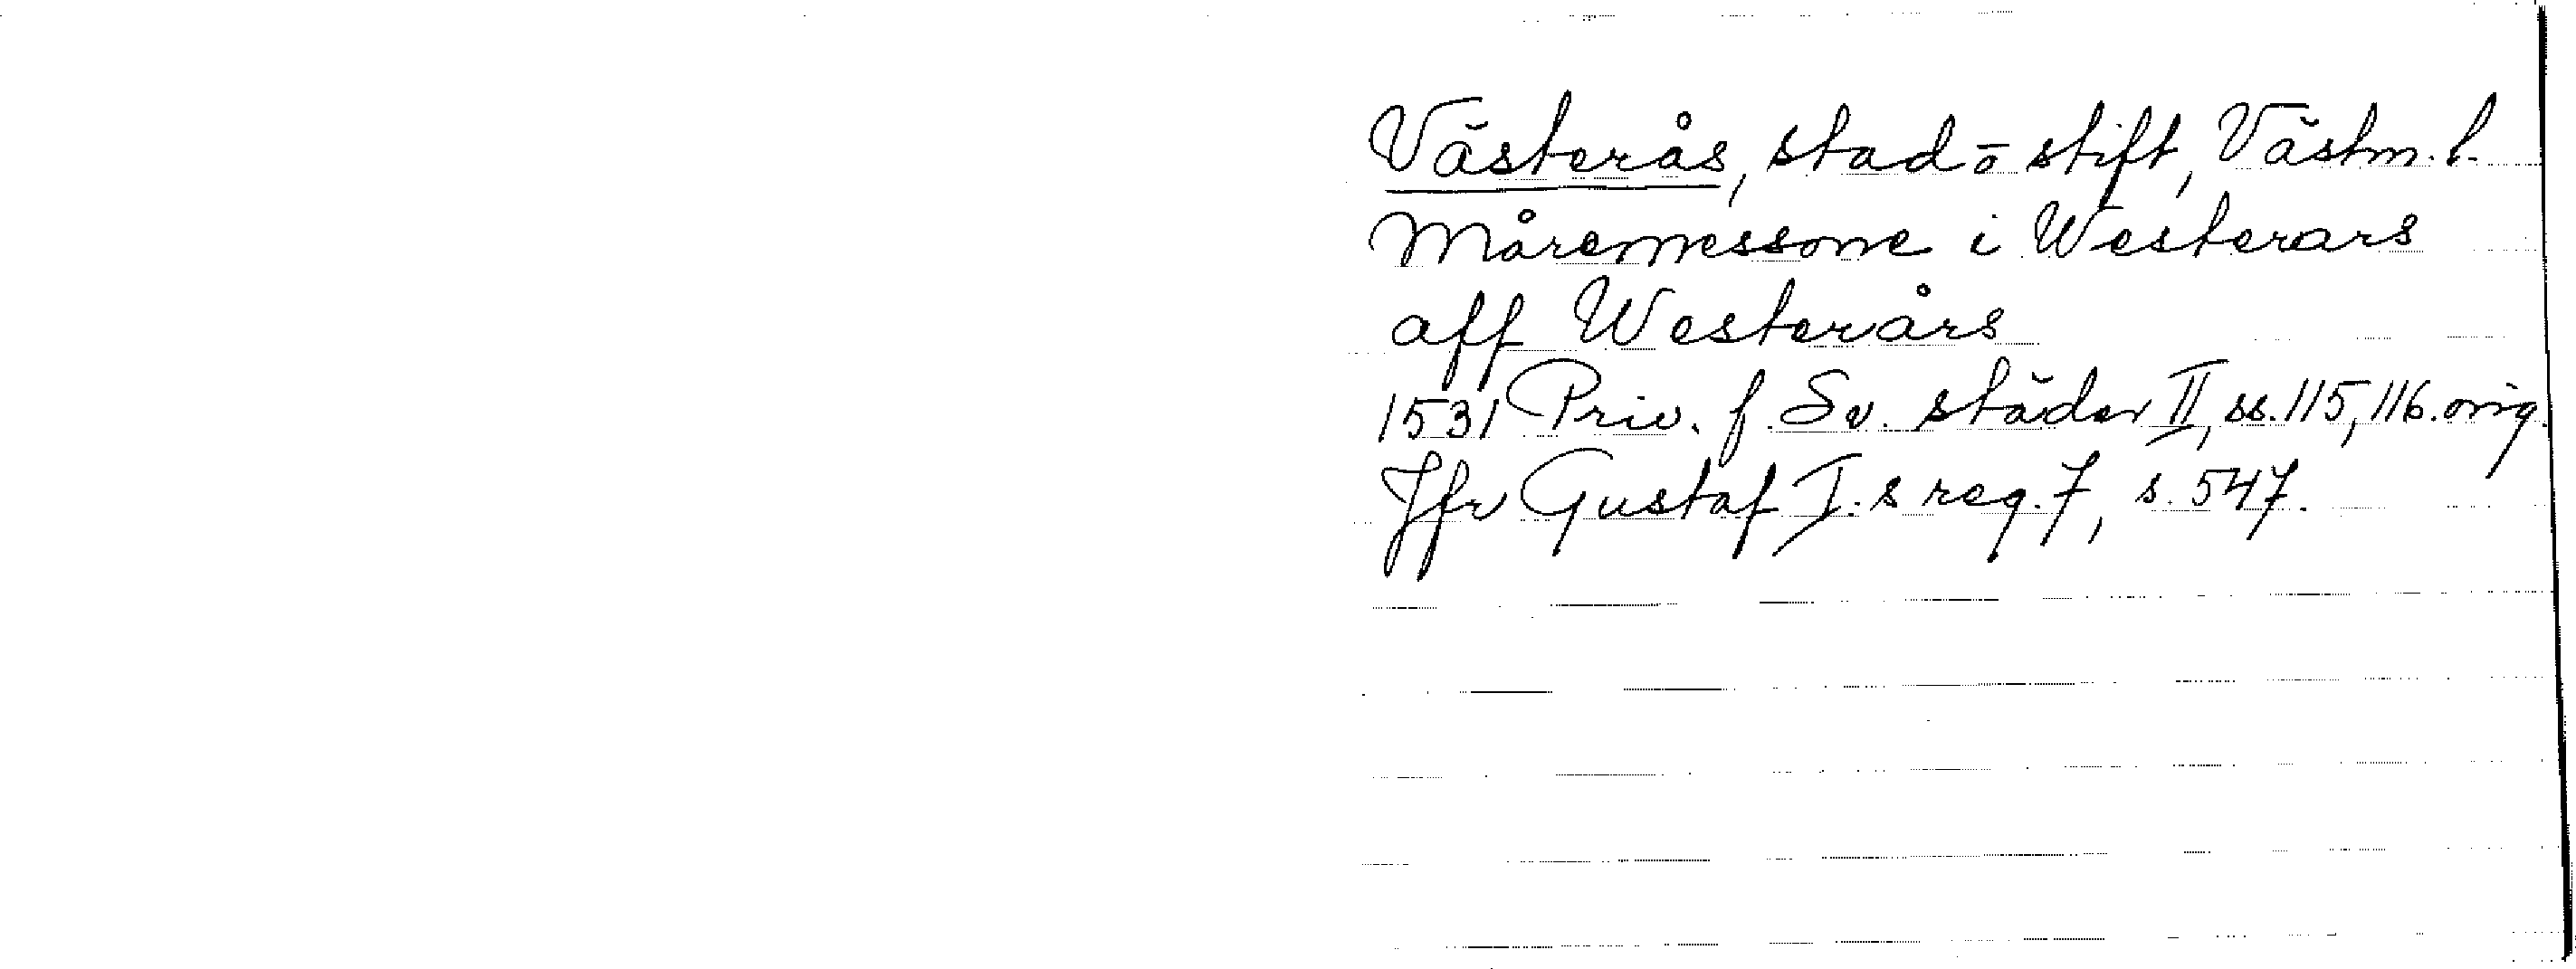 Västerås, stad o stift, Västm. l.
Måremessone i Westerars
aff Westerårs
1531 Priv. f. Sv. städer II, ss. 115, 116. orig.
Jfr Gustaf I:s reg. 7, s. 547.